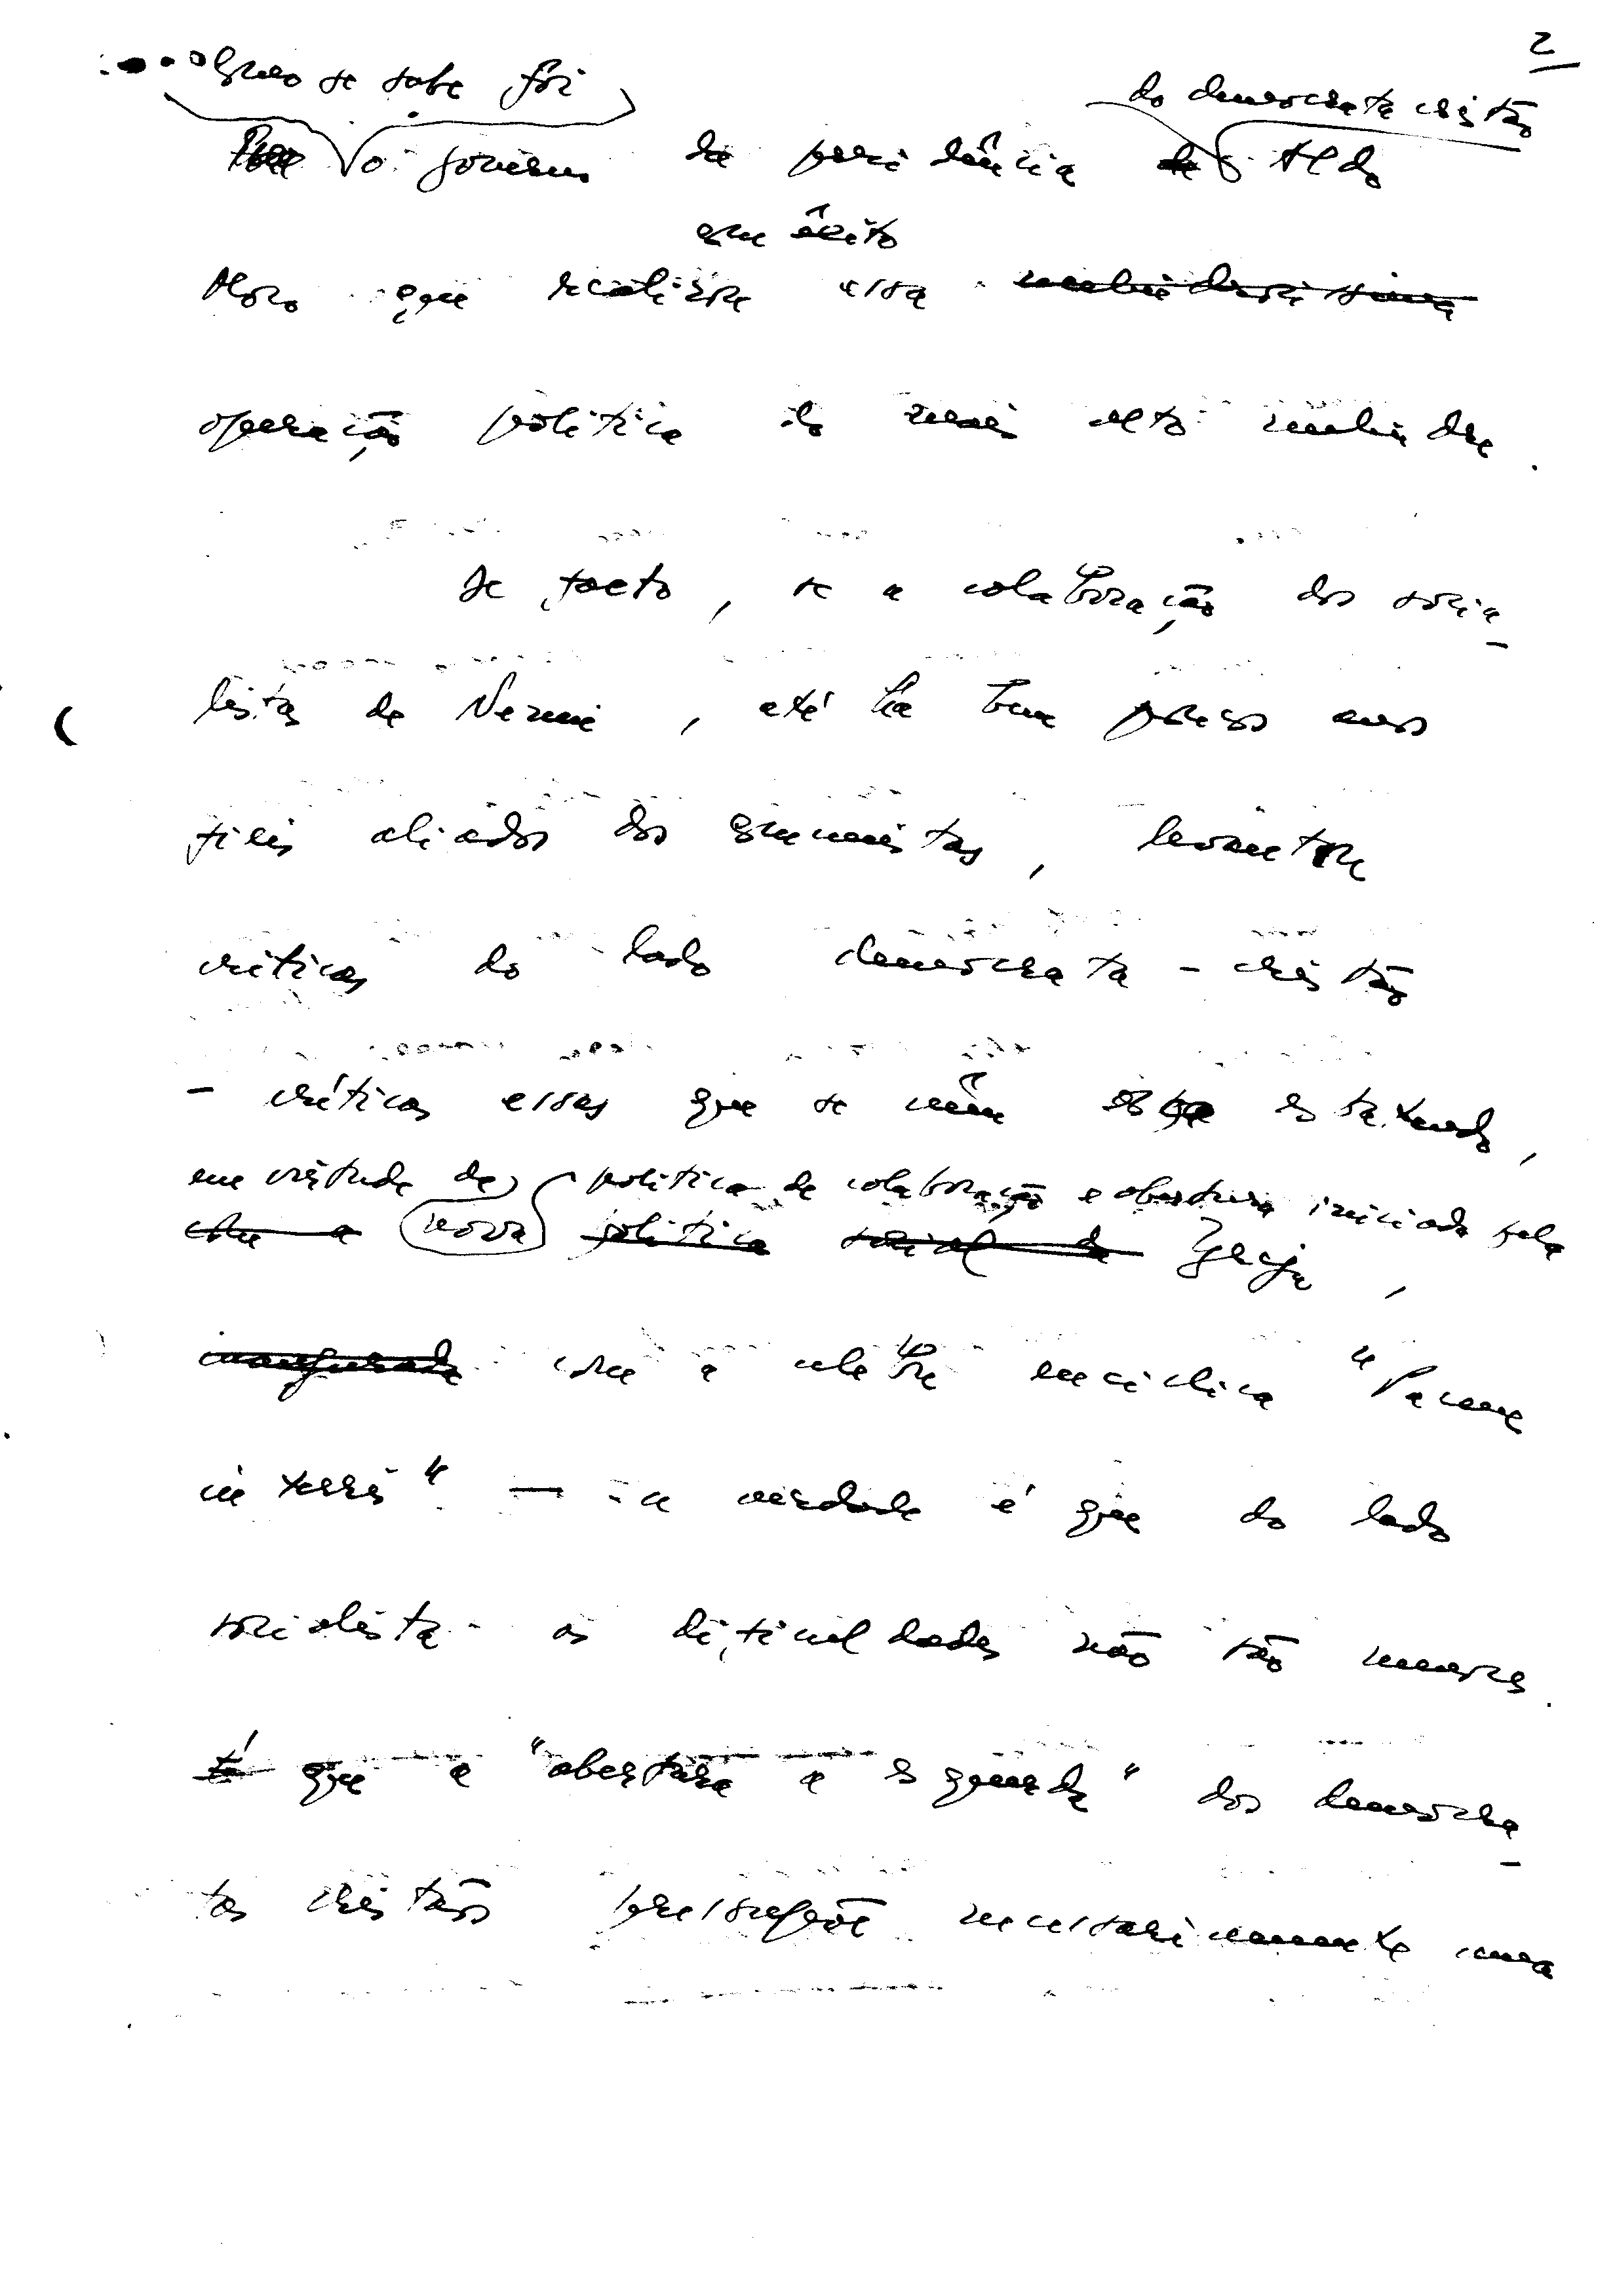 2
Como se sabe foi do democrata cristão
o governo da presidência Aldo
com êxito
Moro que realizou essa
operação política do mais alto melindre.
De facto, se a colaboração dos socia-
listas de Nenni, até há bem pouco
fieis aliados dos comunistas, levantou
críticas do lado democrata-cristão
- críticas essas que se vêm esbatendo,
em virtude da política de colaboração e abertura iniciada pela
nova Igreja,
com a celebre enciclica "Pacem
in terris" — a verdade é que do lado
socialista as dificuldades não são menores.
É que a "abertura a esquerda" dos democra-
tas cristãos pressupõe necessariamente uma